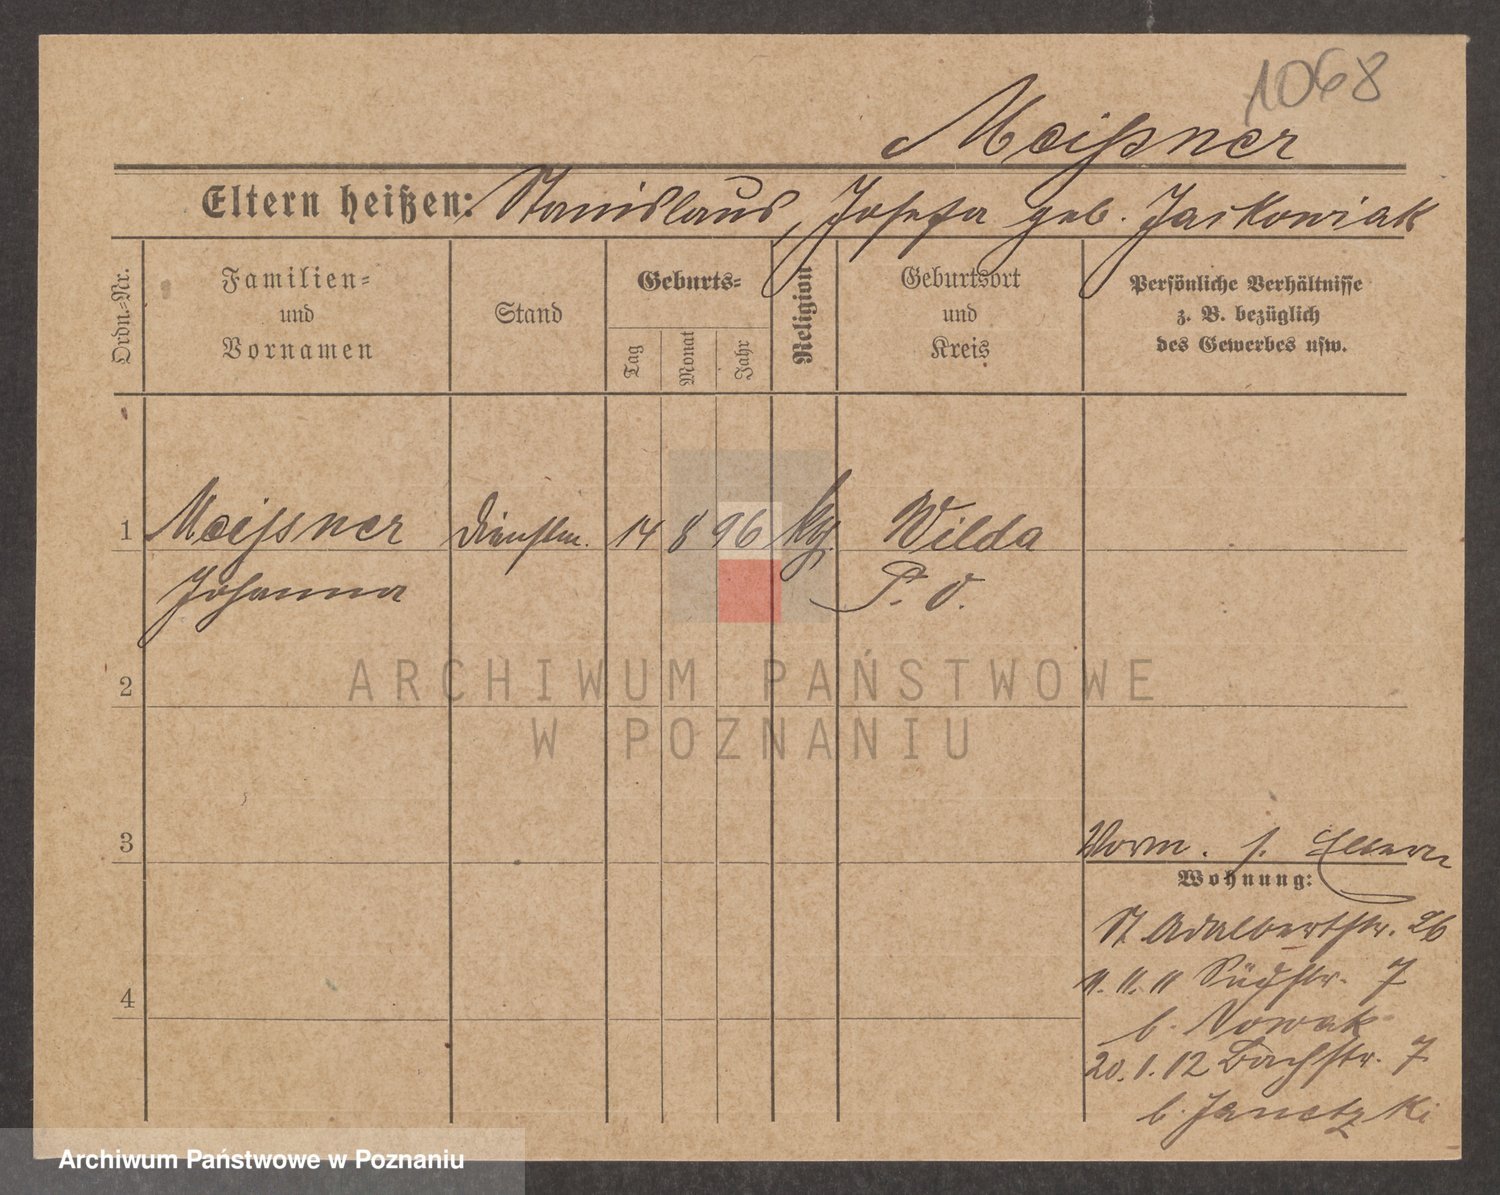 1068
Meißner
Eltern heißen: Stanislaus, Josefa geb. Jaskowiak
Ordn.-Nr.
Familien-
und
Vornamen
Stand
Geburts-
Tag
Monat
Jahr
Religion
Geburtsort
und
Kreis
Persönliche Verhältnisse
z. B. bezüglich
des Gewerbes usw.
1 Meißner Dienstm. 14 8 96 kg. Wilda
Johanna P. O.
ARCHIWUM PAŃSTWOWE
W POZNANIU
2
3
Vorm. s. Eltern
Wohnung:
St Adalbertstr. 26
11. 11. 11 Südstr. 7
b. Nowak
4
20. 1. 12 Bachstr. 7
b. Janetzki
Archiwum Państwowe w Poznaniu